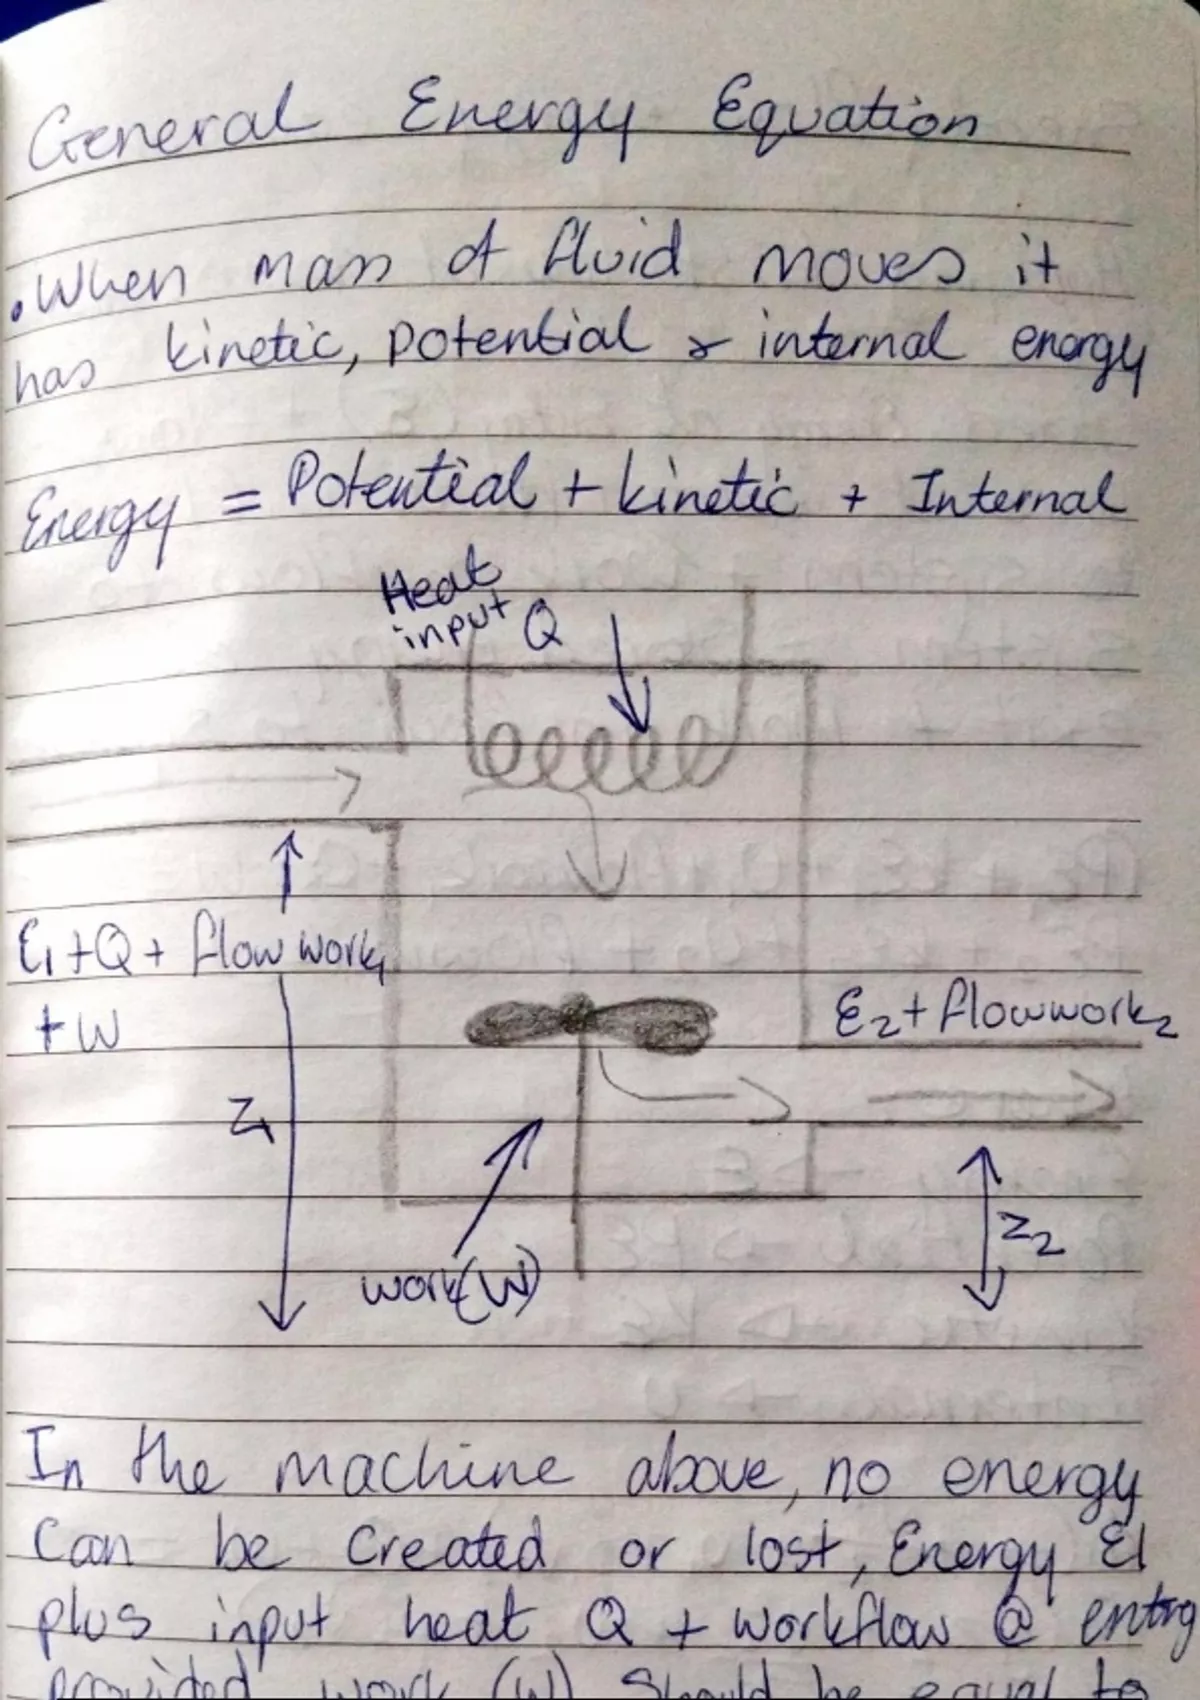 General Energy Equation
. When mass of fluid moves it
has kinetic, potential & internal energy
Energy = Potential + kinetic + Internal
Heat
input Q
E1 + Q + flow work1
+ W
E2 + flowwork2
Z1
Z2
work(W)
In the machine above, no energy
can be created or lost, Energy E1
plus input heat Q + workflow @ entry
provided work (W) should be equal to